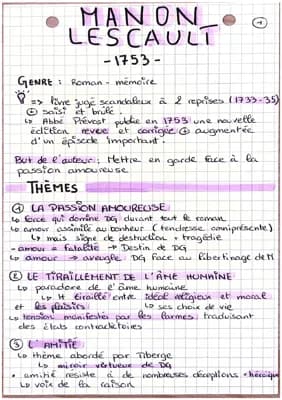 MANON
LESCAULT
- 1753 -
GENRE : Roman - mémoire
=> livre jugé scandaleux à 2 reprises (1733-35)
saisi et brûlé.
↳ Abbé Prévost publie en 1753 une nouvelle
édition revue et corrigée ⊕ augmentée
d'un épisode important.
But de l'auteur : Mettre en garde face à la
passion amoureuse.
THÈMES
① LA PASSION AMOUREUSE
↳ force qui domine DG durant tout le roman
↳ amour assimilé au bonheur (tendresse omniprésente)
↳ mais signe de destruction + tragédie
- amour = fatalité → Destin de DG
↳ amour → aveugle DG face au libertinage de M
② LE TIRAILLEMENT DE L'ÂME HUMAINE
↳ paradoxe de l'âme humaine
↳ H tiraillé entre idéal religieux et moral
et les plaisirs ↳ ses choix de vie
↳ tension manifestée par les larmes traduisant
des états contradictoires
③ L'AMITIÉ
↳ thème abordé par Tiberge
↳ miroir vertueux de DG
• amitié résiste à de nombreuses déceptions + héroïque
↳ voix de la raison